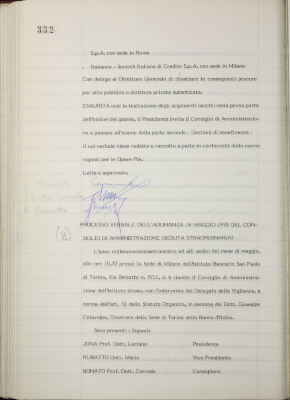 332
S.p.A. con sede in Roma
. Italcasse - Società Italiana di Credito S.p.A. con sede in Milano
Con delega al Direttore Generale di rilasciare le conseguenti procure
per atto pubblico o scrittura privata autenticata.
ESAURITA così la trattazione degli argomenti iscritti nella prima parte
dell'ordine del giorno, il Presidente invita il Consiglio di Amministrazio-
ne a passare all'esame della parte seconda - Gestioni di beneficenza -
il cui verbale viene redatto e raccolto a parte in conformità delle norme
vigenti per le Opere Pie.
Letto e approvato.
(8)
PROCESSO VERBALE DELL'ADUNANZA 16 MAGGIO 1978 DEL CON-
SIGLIO DI AMMINISTRAZIONE (SEDUTA STRAORDINARIA)
L'anno millenovecentosettantotto ed alli sedici del mese di maggio,
alle ore 10,30 presso la Sede di Milano dell'Istituto Bancario San Paolo
di Torino, Via Broletto n. 9/11, si è riunito il Consiglio di Amministra-
zione dell'Istituto stesso, con l'intervento del Delegato della Vigilanza, a
norma dell'art. 31 dello Statuto Organico, in persona del Dott. Giuseppe
Direttore della Sede di Torino della Banca d'Italia.
Sono presenti i Signori:
JONA Prof. Dott. Luciano Presidente
RUBATTO Dott. Mario Vice Presidente
BONATO Prof. Dott. Corrado Consigliere